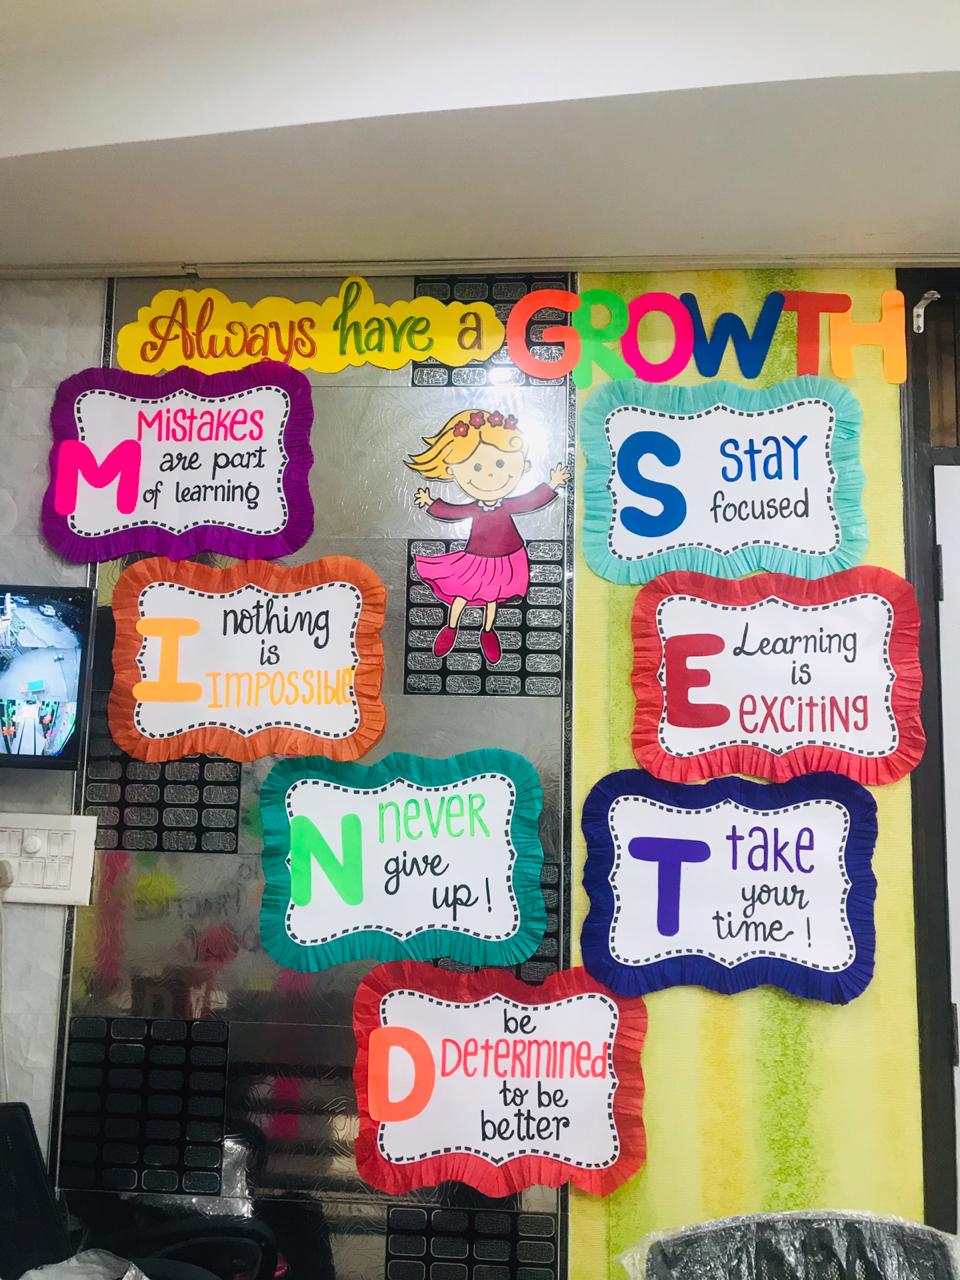 Always have a GROWTH
M
Mistakes
are part
of learning
I
nothing
is
IMPOSSIBLE
N
never
give
up!
D
be
DETERMINED
to be
better
S
stay
focused
E
Learning
is
EXCITING
T
take
your
time!